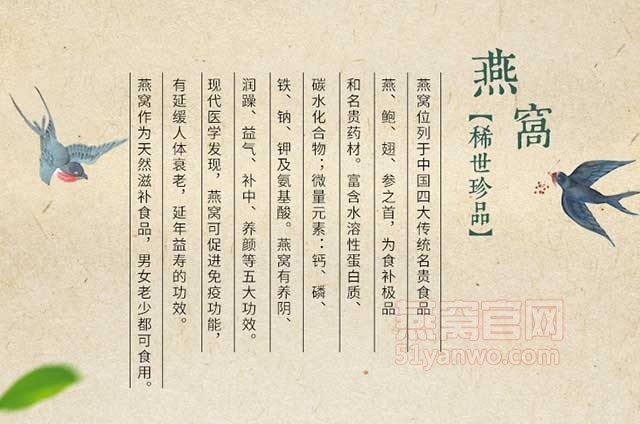 燕窝
【稀世珍品】
燕窝位列于中国四大传统名贵食品
燕、鲍、翅、参之首，为食补极品
和名贵药材。富含水溶性蛋白质、
碳水化合物；微量元素：钙、磷、
铁、钠、钾及氨基酸。燕窝有养阴、
润躁、益气、补中、养颜等五大功效。
现代医学发现，燕窝可促进免疫功能，
有延缓人体衰老，延年益寿的功效。
燕窝作为天然滋补食品，男女老少都可食用。
燕窝官网
51yanwo.com